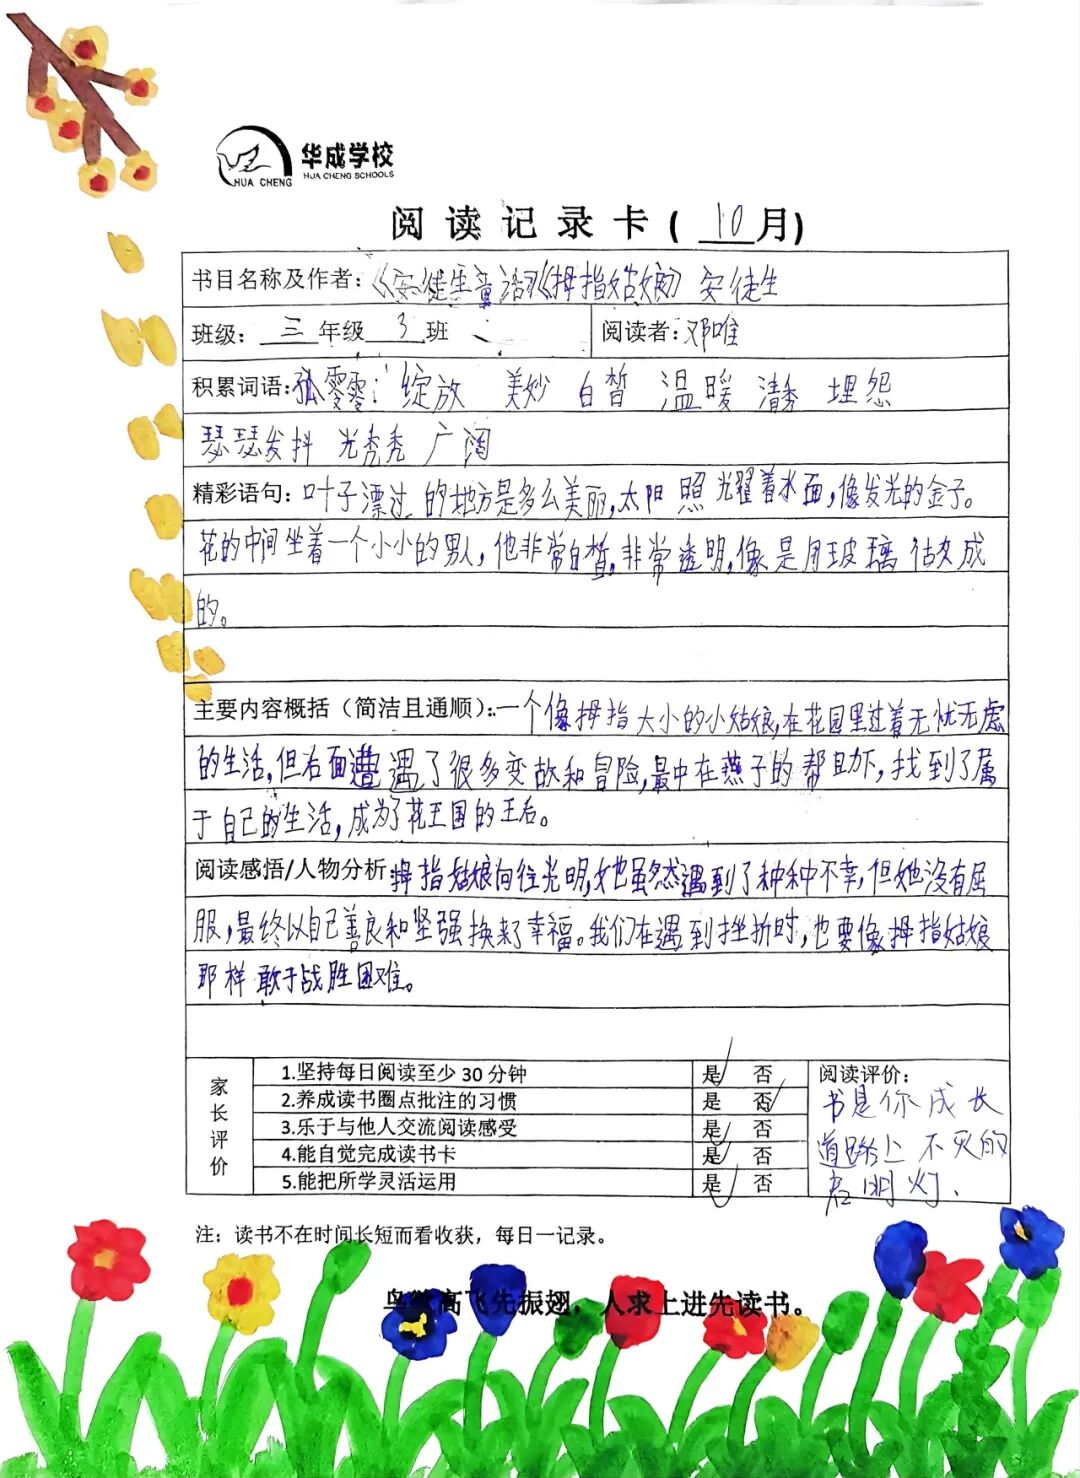 华成学校
HUA CHENG SCHOOLS
HUA CHENG
阅读记录卡( 10月)
书目名称及作者:《安徒生童话》《拇指姑娘》 安徒生
班级: 三 年级 3 班 阅读者: 邓唯
积累词语: 孤零零; 绽放 美妙 白皙 温暖 清秀 埋怨
瑟瑟发抖 光秃秃 广阔
精彩语句: 叶子漂过的地方是多么美丽,太阳照光耀着水面,像发光的金子。
花的中间坐着一个小小的男人,他非常白皙,非常透明,像是用玻璃做成
的。
主要内容概括(简洁且通顺): 一个像拇指大小的小姑娘,在花园里过着无忧无虑
的生活,但后面遭遇了很多变故和冒险,最中在燕子的帮助下,找到了属
于自己的生活,成为了花王国的王后。
阅读感悟/人物分析: 拇指姑娘向往光明,她虽然遇到了种种不幸,但她没有屈
服,最终以自己善良和坚强换来了幸福。我们在遇到挫折时,也要像拇指姑娘
那样敢于战胜困难。
家长评价
1.坚持每日阅读至少30分钟 是✓ 否
2.养成读书圈点批注的习惯 是 否✓
3.乐于与他人交流阅读感受 是✓ 否
4.能自觉完成读书卡 是✓ 否
5.能把所学灵活运用 是✓ 否
阅读评价:
书是你成长
道路上不灭的
启明灯.
注:读书不在时间长短而看收获,每日一记录。
鸟欲高飞先振翅,人求上进先读书。